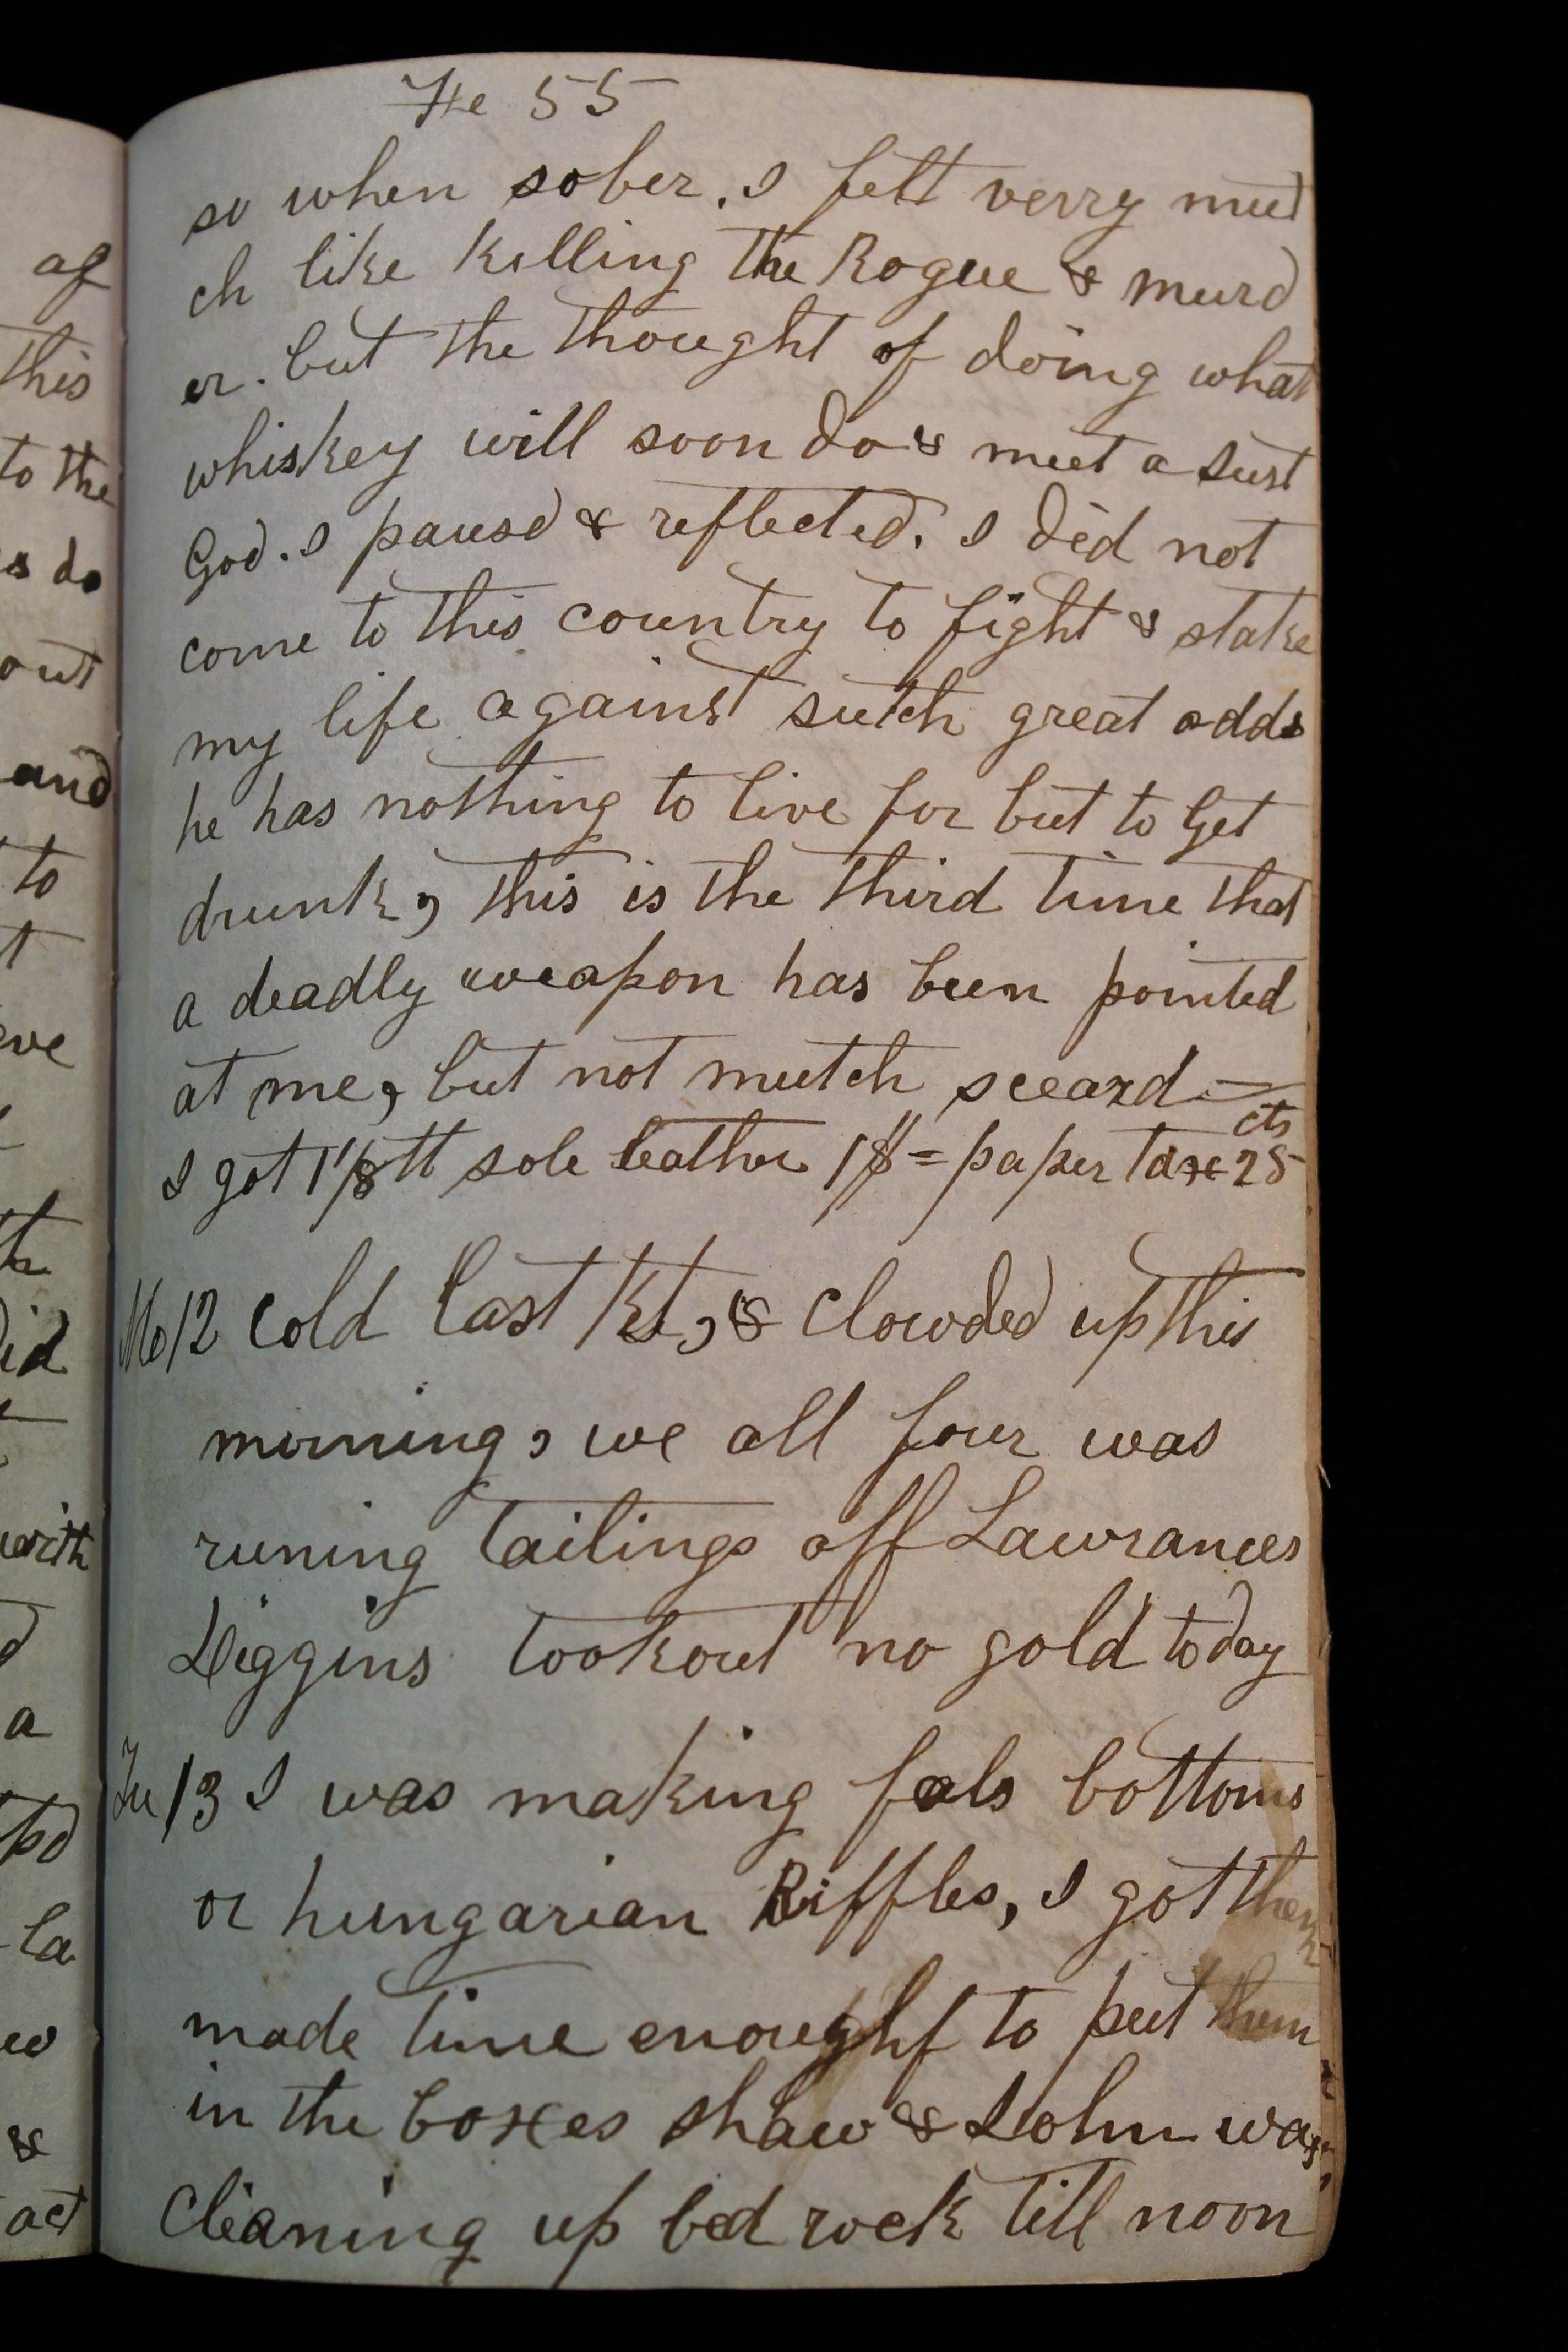 Fe 55
so when sober. I felt verry mut
ch like killing the Rogue & murd
er. but the thought of doing what
whiskey will soon do & meet a Just
God. I pausd & reflected. I did not
come to this country to fight & stake
my life against sutch great odds
he has nothing to live for but to Get
drunk, this is the third time that
a deadly weapon has been pointed
at me, but not mutch sceard =
I got 1 1/8 tt sole leather 1$ = paper taxe 25 cts
Mo 12 Cold last Nt, & Clowded up this
morning, we all four was
runing tailings off Lawrances
Diggins tookout no gold today
Tu 13 I was making fals bottoms
or hungarian Riffles, I got them
made time enought to put them
in the boxes shaw & John was
Cleaning up bed rock till noon
af
this
to the
s do
out
and
to
t
ve
th
did
with
d
a
la
w
&
act